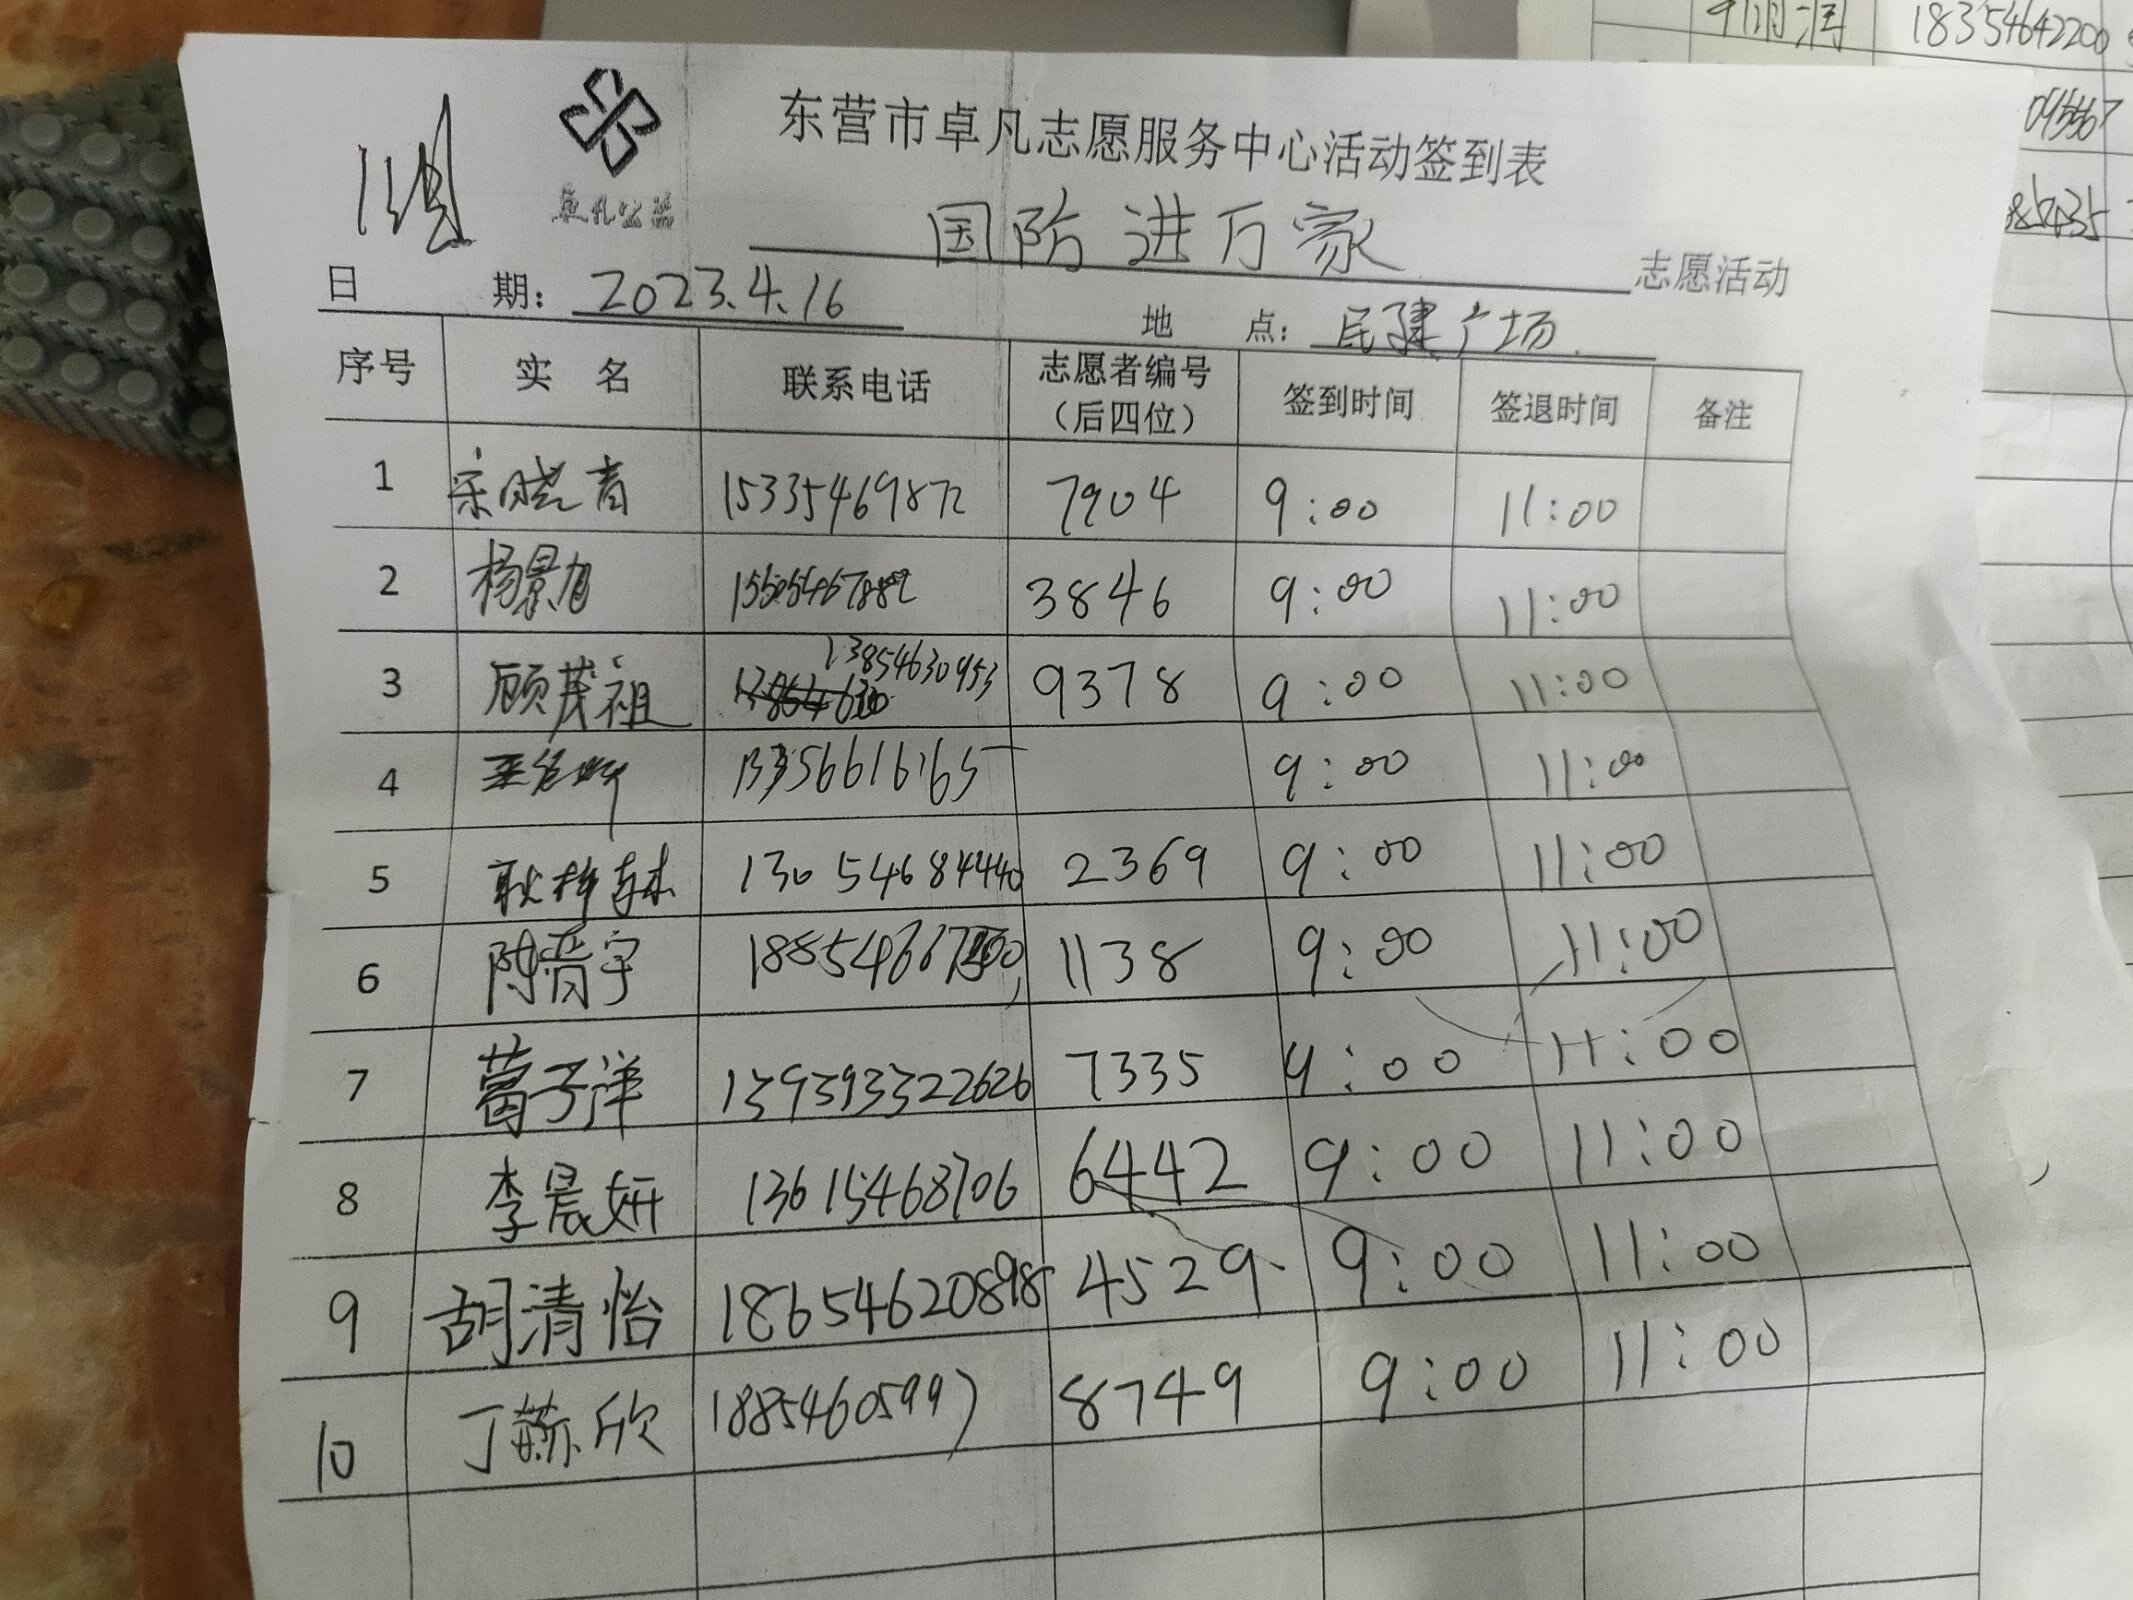 18354642200
东营市卓凡志愿服务中心活动签到表
卓凡公益
国防进万家 志愿活动
日 期: 2023.4.16 地 点: 民建广场
序号 实 名 联系电话 志愿者编号(后四位) 签到时间 签退时间 备注
1 宋晓青 15335469872 7904 9:00 11:00
2 杨景旭 3846 9:00 11:00
13854630953
3 顾茂祖 9378 9:00 11:00
4 13356616165 9:00 11:00
5 耿梓 13054684440 2369 9:00 11:00
6 陈晋宇 1138 9:00 11:00
7 葛子洋 7335 9:00 11:00
8 李晨妍 13615468706 6442 9:00 11:00
9 胡清怡 18654620898 4529 9:00 11:00
10 丁赫欣 18854605997 8749 9:00 11:00